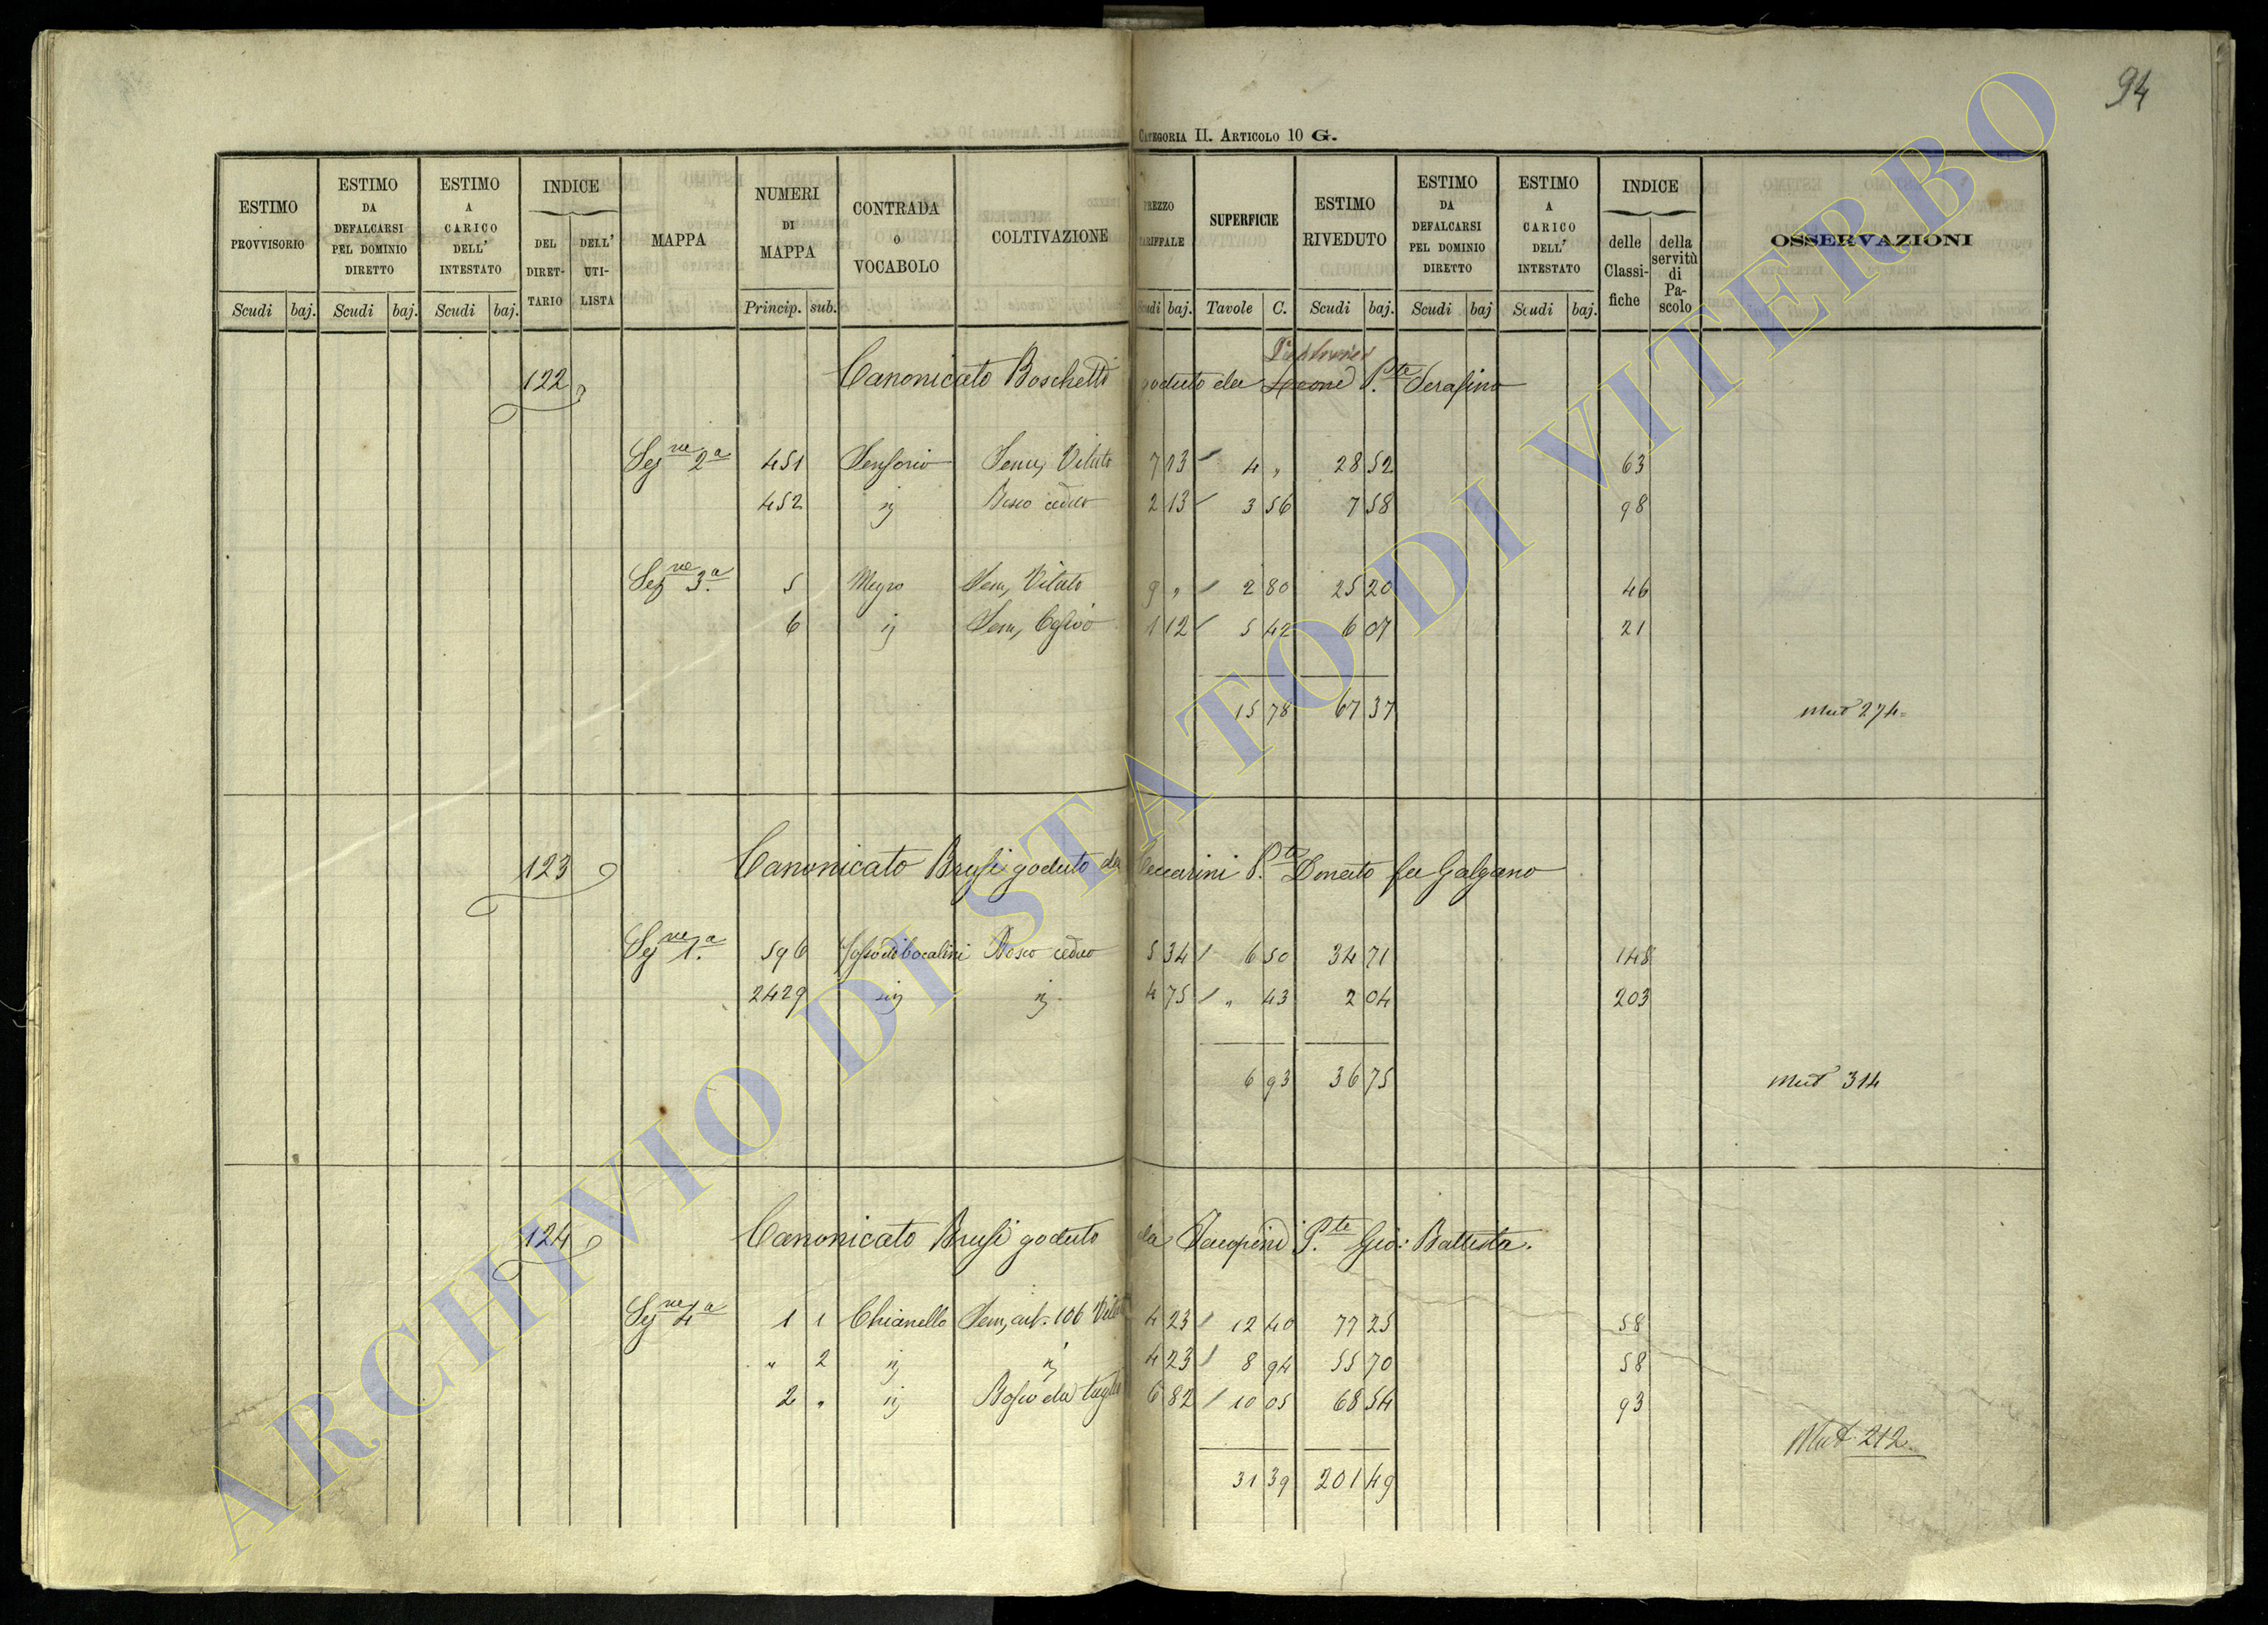 94
CATEGORIA II. ARTICOLO 10 G.
ESTIMO PROVVISORIO Scudi baj.
ESTIMO DA DEFALCARSI PEL DOMINIO DIRETTO Scudi baj.
ESTIMO A CARICO DELL' INTESTATO Scudi baj.
INDICE DEL DIRET-TARIO DELL' UTI-LISTA
MAPPA
NUMERI DI MAPPA Princip. sub.
CONTRADA O VOCABOLO
COLTIVAZIONE
PREZZO TARIFFALE Scudi baj.
SUPERFICIE Tavole C.
ESTIMO RIVEDUTO Scudi baj.
ESTIMO DA DEFALCARSI PEL DOMINIO DIRETTO Scudi baj
ESTIMO A CARICO DELL' INTESTATO Scudi baj.
INDICE delle Classi-fiche della servitù di Pa-scolo
OSSERVAZIONI
122 Canonicato Boschetti goduto da P.te Serafino
Sez.ne 2a 451 Sem, Vitato 7 13 4 " 28 52 63
452 Bosco ceduo 2 13 3 56 7 58 98
Sez.ne 3.a 5 Sem, Vitato 9 " 2 80 25 20 46
6 Sem, 1 12 5 42 6 07 21
15 78 67 37 Mut 274
123 Canonicato Brusi goduto da Ceccarini P.te Donato fu Galgano
Sez.ne 1.a 596 Bosco ceduo 5 34 6 50 34 71 148
2429 4 75 " 43 2 04 203
6 93 36 75 Mut 314
124 Canonicato Brusi goduto da Jacopini P.te Gio: Battista.
Sez.ne 4a 1 1 Chianello Sem, arb. 106 Vitat 4 23 12 40 77 25 58
" 2 4 23 8 94 55 70 58
2 " Bosco da taglio 6 82 10 05 68 54 93
31 39 201 49 Mut. 212.
ARCHIVIO DI STATO DI VITERBO